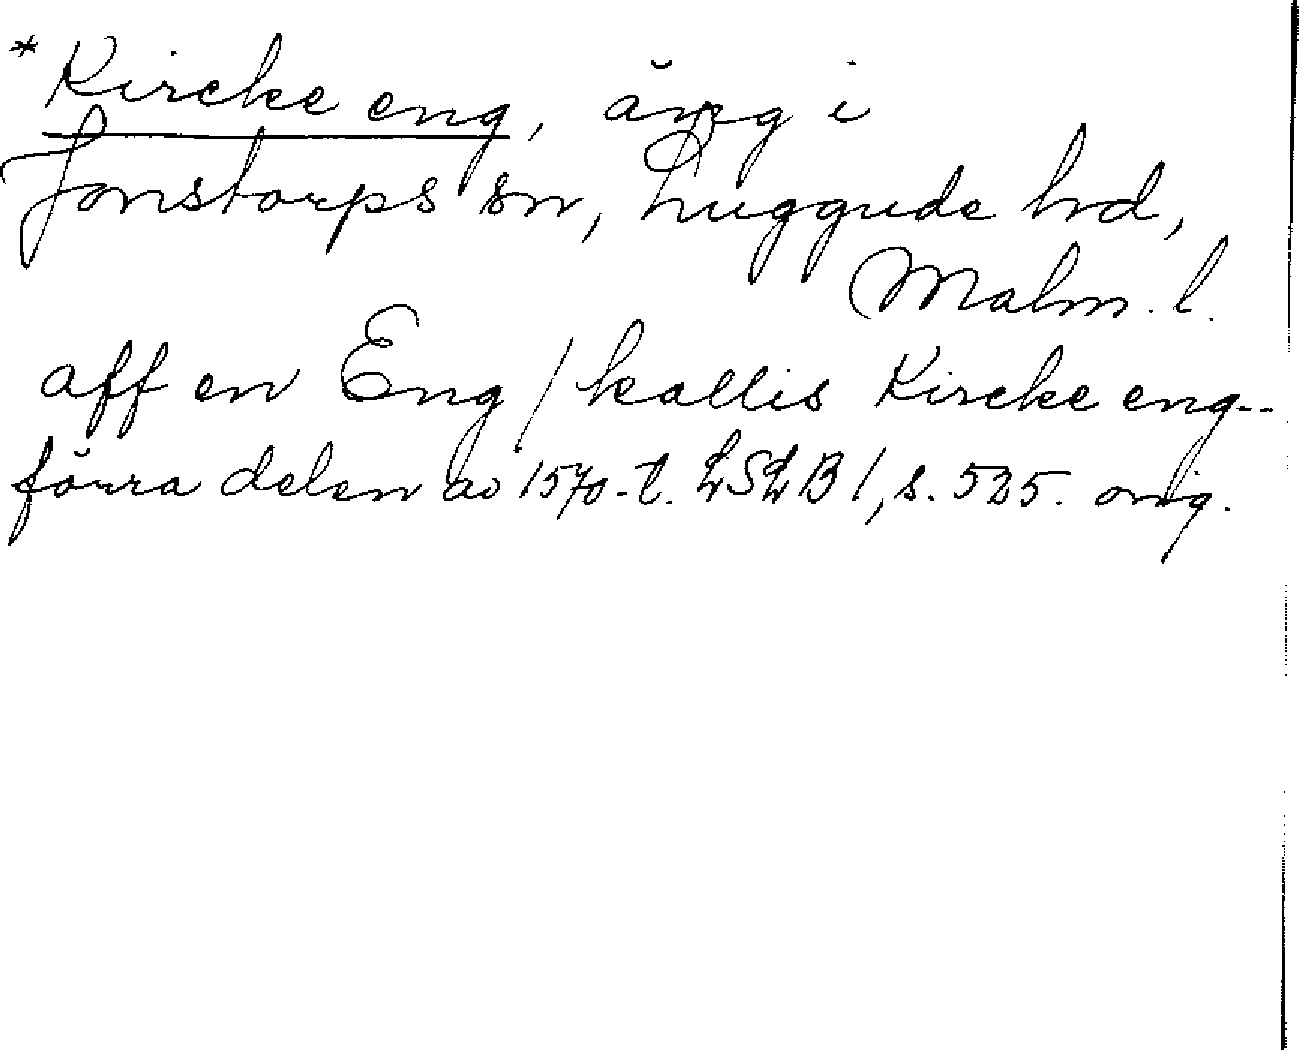 *Kircke eng, äng i
Jonstorps sn, Luggude hd,
Malm. l.
aff en Eng / kallis Kircke eng--
förra delen av 1570-t. LSLB 1, s. 525. orig.